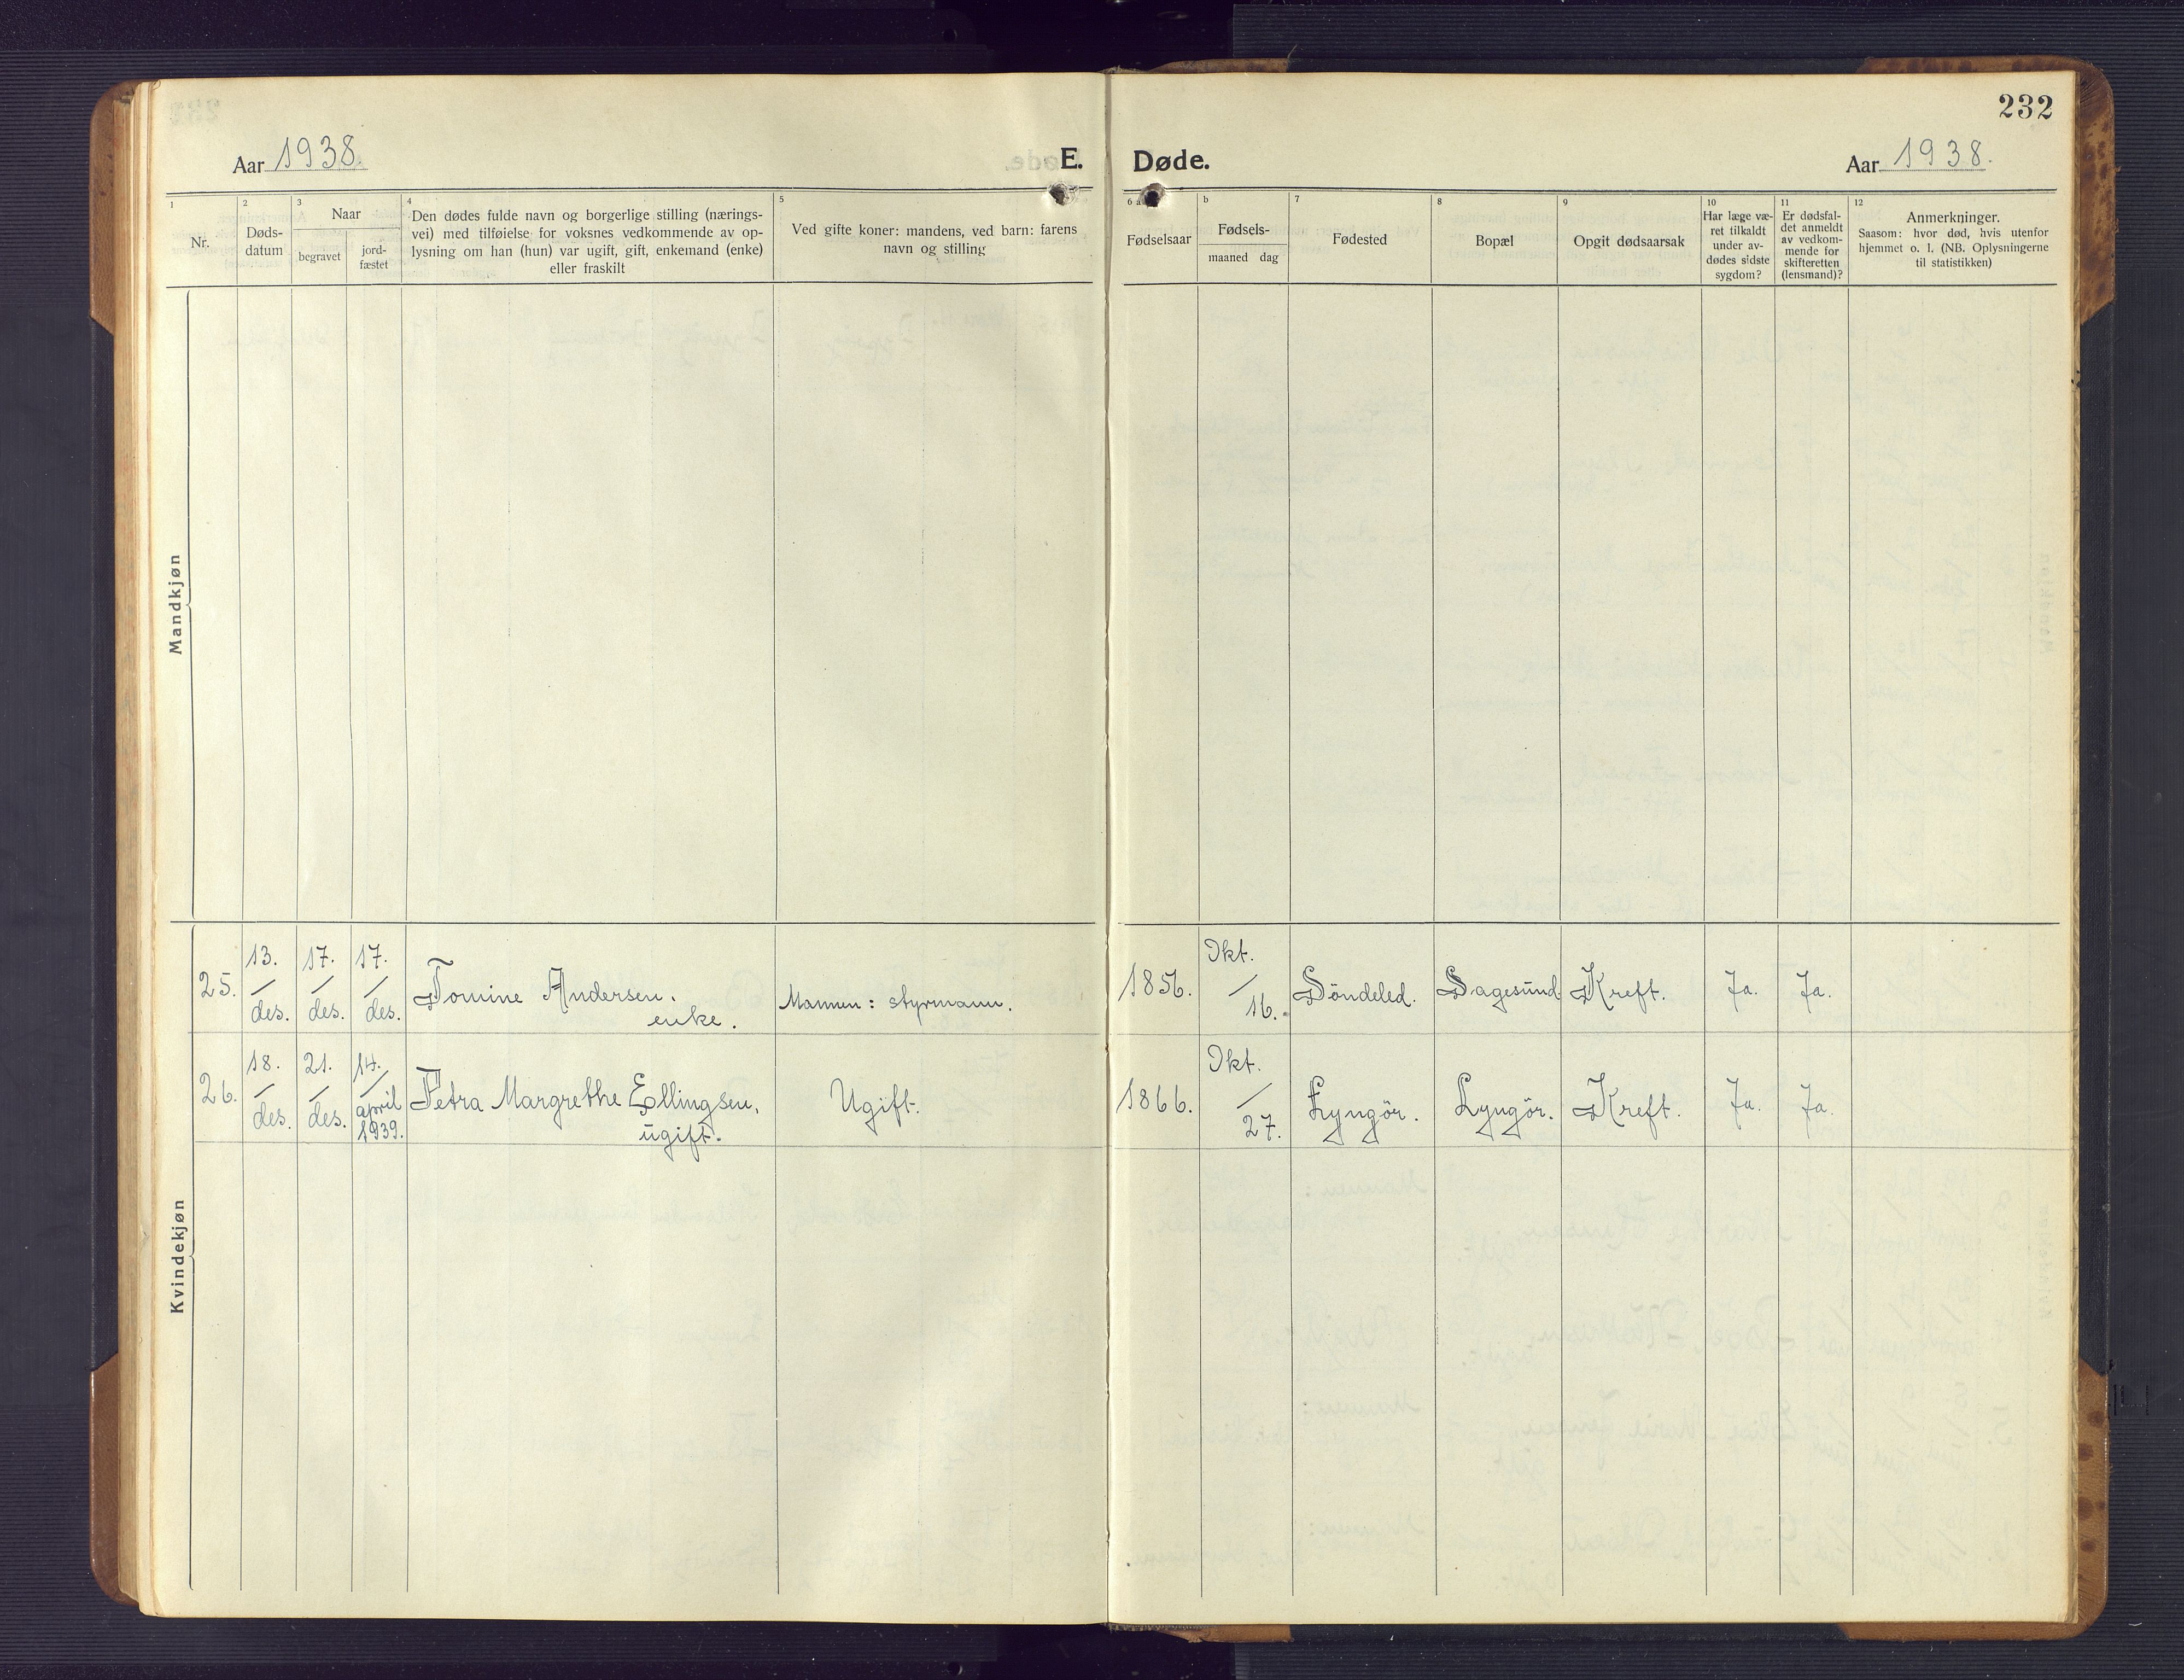 232
Aar 1938.
E. Døde.
Aar 1938.
1
Nr.
2
Døds-
datum
3
Naar
begravet
jord-
fæstet
4
Den dødes fulde navn og borgerlige stilling (nærings-
vei) med tilføielse for voksnes vedkommende av op-
lysning om han (hun) var ugift, gift, enkemand (enke)
eller fraskilt
5
Ved gifte koner: mandens, ved barn: farens
navn og stilling
6 a
Fødselsaar
b
Fødsels-
maaned dag
7
Fødested
8
Bopæl
9
Opgit dødsaarsak
10
Har læge væ-
ret tilkaldt
under av-
dødes sidste
sygdom?
11
Er dødsfal-
det anmeldt
av vedkom-
mende for
skifteretten
(lensmand)?
12
Anmerkninger.
Saasom: hvor død, hvis utenfor
hjemmet o. l. (NB. Oplysningerne
til statistikken)
Mandkjøn
Kvindekjøn
25.
13.
/
des.
17.
/
des.
17.
/
des.
Tomine Andersen.
enke.
Mannen: styrmann.
1856.
Okt.
/
16.
Söndeled.
Sagesund
Kreft.
Ja.
Ja.
26.
18.
/
des.
21.
/
des.
14.
/
april
1939.
Petra Margrethe Ellingsen,
ugift.
Ugift.
1866.
Okt.
/
27.
Lyngör.
Lyngör.
Kreft.
Ja.
Ja.